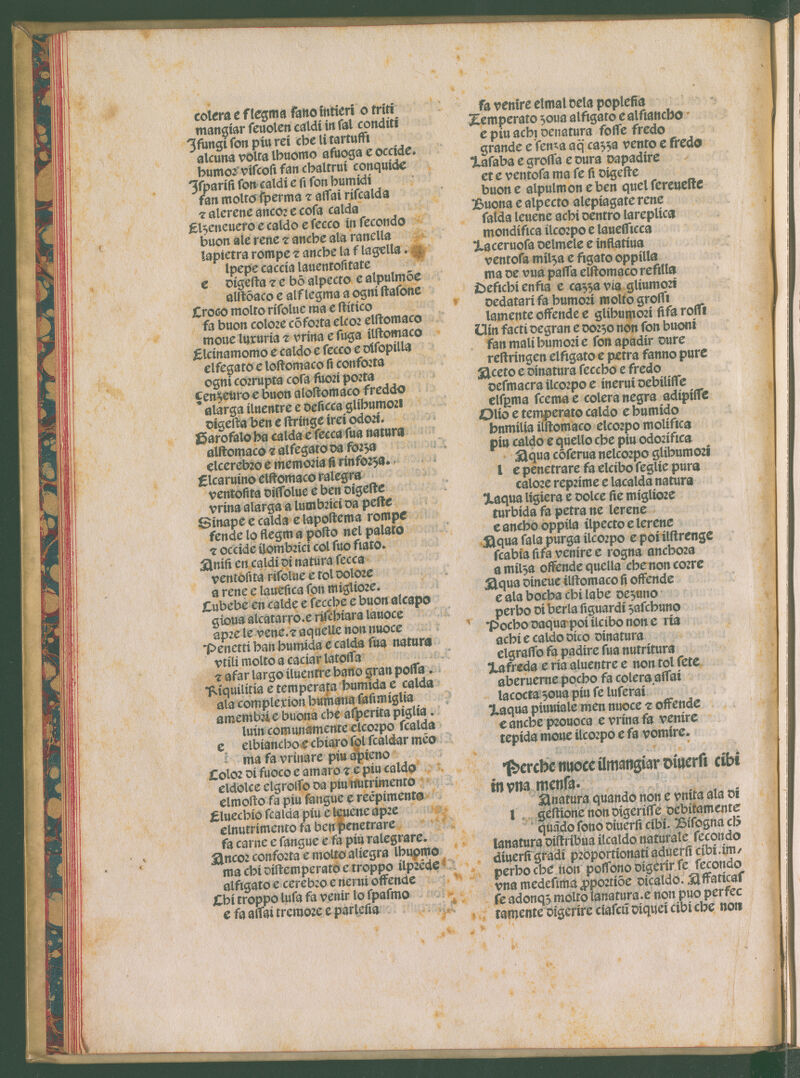 colera e flegma fano intieri o triti
mangiar seuolen caldi in sal conditi
Ifungi son piu rei che li tartuffi
alcuna volta lhuomo afuoga e occide.
humor viscosi fan chaltrui conquide
Isparisi son caldi e si son humidi
fan molto sperma ⁊ assai riscalda
⁊ alerene ancor e cosa calda
Elzeneuero e caldo e secco in secondo
buon ale rene ⁊ anche ala ranella
lapietra rompe ⁊ anche la flagella.
Ipepe caccia lauentositate
e digesta ⁊ e bō alpecto e alpulmōe
alstōaco e alflegma a ogni stasone
Croco molto risolue ma e stitico
fa buon colore cōforta elcor elstomaco
moue luxuria ⁊ vrina e fuga ilstomaco
Elcinamomo e caldo e secco e disopilla
elfegato e lostomaco si conforta
ogni corrupta cosa fuori porta
Cenzeuro e buon alostomaco freddo
alarga iluentre e desicca glihumori
digesta ben e stringe irei odori.
Garofalo ha calda e secca sua natura
alstomaco ⁊ alfegato da forza
elcerebro e memoria si rinforza.
Elcaruino elstomaco ralegra
ventosita dissolue e ben digeste
vrina alarga a lumbrici da peste
Sinape e calda e lapostema rompe
fende lo flegma posto nel palato
⁊ occide ilombrici col suo fiato.
Anisi en caldi di natura secca
ventosita risolue e tol dolore
a rene e lauesica son migliore.
Cubebe en calde e secche e buon alcapo
gioua alcatarro.e rischiara lauoce
apre le vene.⁊ aquelle non nuoce
Penetti han humida e calda sua natura
vtili molto a caciar latossa
⁊ afar largo iluentre hano gran possa.
Riquilitia e temperata humida e calda
ala complexion humana sasimiglia
amembri e buona che asperita piglia.
luin comunamente elcorpo scalda
e elbiancho e chiaro sol scaldar meo
ma fa vrinare piu apieno
Color di fuoco e amaro ⁊ e piu caldo
eldolce elgrosso da piu nutrimento
elmosto fa piu sangue e recpimento
Eluechio scalda piu e leuene apre
elnutrimento fa ben penetrare
fa carne e sangue e fa piu ralegrare.
Ancor conforta e molto aliegra lhuomo
ma chi distemperato e troppo ilprēde
alfigato e cerebro e nerui offende
Chi troppo lusa fa venir lo spasmo
e fa assai tremore e parlesia
fa venire elmal dela poplesia
Temperato zoua alfigato e alfiancho
e piu achi denatura fosse fredo
grande e senza aq̄ cazza vento e fredo
Lasaba e grossa e dura dapadire
et e ventosa ma se si digeste
buon e alpulmon e ben quel sereueste
Buona e alpecto alepiagate rene
salda leuene achi dentro lareplica
mondifica ilcorpo e lauessicca
Laceruosa delmele e inflatiua
ventosa milza e figato oppilla
ma de vua passa elstomaco refilla
Desichi ensia e cazza via gliumori
dedatari fa humori molto grossi
lamente offende e glihumori sifa rossi
Uin facti degran e dorzo non son buoni
fan mali humori e son apadir dure
restringen elfigato e petra fanno pure
Aceto e dinatura seccho e fredo
desmacra ilcorpo e inerui debilisse
elspma scema e colera negra adipisse
Olio e temperato caldo e humido
humilia ilstomaco elcorpo molifica
piu caldo e quello che piu odorifica
Aqua cōserua nelcorpo glihumori
l e penetrare fa elcibo seglie pura
calore reprime e lacalda natura
Laqua ligiera e dolce sie migliore
turbida fa petra ne lerene
e ancho oppila ilpecto e lerene
Aqua sala purga ilcorpo e poi ilstrenge
scabia sifa venire e rogna anchora
a milza offende quella che non corre
Aqua dineue ilstomaco si offende
e ala bocha chi labe dezuno
perho di berla siguardi zaschuno
Pocho daqua poi ilcibo non e ria
achi e caldo dico dinatura
elgrasso fa padire sua nutritura
Lafreda e ria aluentre e non tol sete
aberuerne pocho fa colera assai
lacocta zoua piu se luserai
Laqua piuuiale men nuoce ⁊ offende
e anche prouoca e vrina fa venire
tepida moue ilcorpo e fa vomire.
Perche nuoce ilmangiar diuersi cibi
in vna mensa.
Anatura quando non e vnita ala di
l gestione non digerisse debitamente
quādo sono diuersi cibi. Bisogna ch
lanatura distribua ilcaldo naturale secondo
diuersi gradi proportionati aduersi cibi.im/
perho che non possono digerir se secondo
vna medesima ꝓportiōe dicaldo. Affaticas
se adonqꝫ molto lanatura.e non puo perfec
tamente digerire ciascū diquei cibi che non